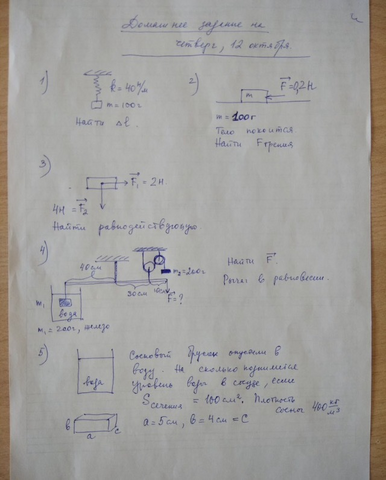 Домашнее задание на
четверг, 12 октября
1)
k = 40 Н/м
m = 100г
Найти Δl.
2)
m
F = 0,2Н
m = 100г
Тело покоится
Найти Fтрения
3)
F₁ = 2Н
4Н = F₂
Найти равнодействующую
4)
40см
m₂ = 200г
30см
10см
F = ?
m₁
вода
m₁ = 200г, железо
Найти F.
Рычаг в равновесии.
5)
вода
Сосновый брусок опустили в
воду. На сколько поднимется
уровень воды в сосуде, если
Sсечения = 100см². Плотность
сосны 400 кг/м³
a = 5см, b = 4см = c
b
a
c